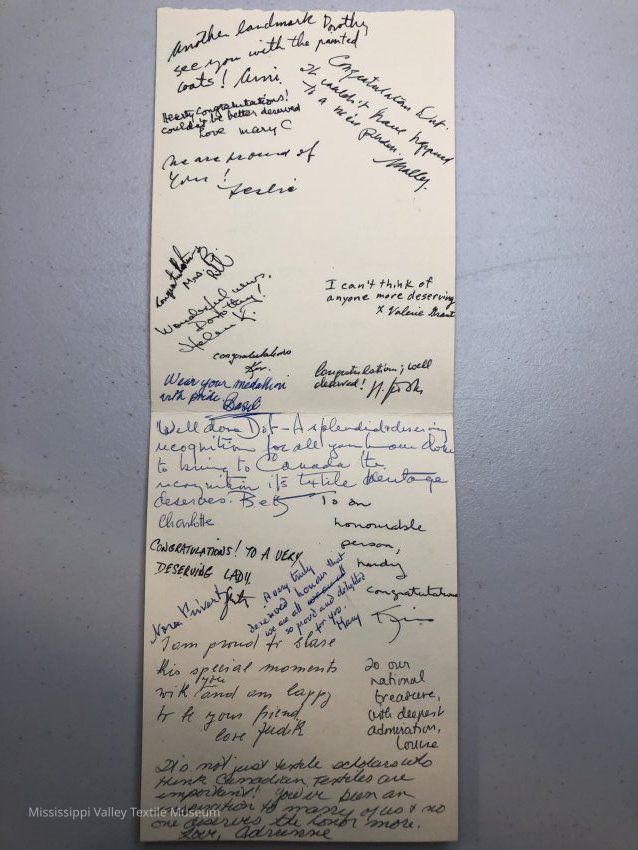 Another landmark Dorothy
see you with the painted
coats! Anni.
Congratulations Dot.
It couldn't have happened
to a nicer
Person.
Hearty Congratulations!
couldn't be better deserved
Love Mary C
We are proud of
You!
Leslie
Congratulations
Mrs.
Wonderful news,
Dorothy!
Helen K.
I can't think of
anyone more deserving
x Valerie Grant
congratulations
Congratulations; well
deserved!
Wear your medallion
with pride
Well done Dot - A splendid & deserving
recognition for all you have done
to bring to Canada the
recognition its textile heritage
deserves.
Charlotte
To an
honourable
person,
hearty
congratulations
CONGRATULATIONS! TO A VERY
DESERVING LADY.
Nora
A very truly
deserved honour that
we are all
so proud and delighted
for you.
Mary
I am proud to share
this special moments
with you and am happy
to be your friend
love Judith
To our
national
treasure,
with deepest
admiration,
Louise
It's not just textile scholars who
think Canadian textiles are
important! You've been an
inspiration to many of us & no
one deserves the honor more.
Love, Adrienne
Mississippi Valley Textile Museum